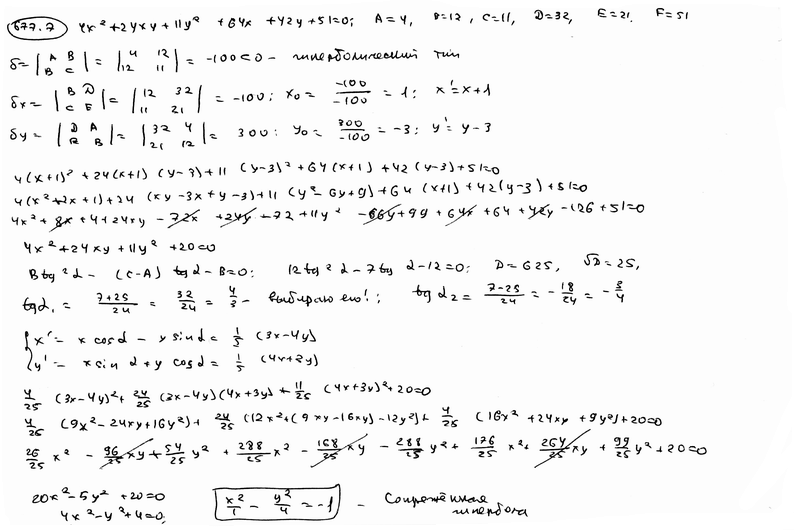 677.7 4x² + 24xy + 11y² + 64x + 42y + 51 = 0; A = 4, B = 12, C = 11, D = 32, E = 21, F = 51
δ = |A B; B C| = |4 12; 12 11| = -100 < 0 - гиперболический тип
δx = |B D; C E| = |12 32; 11 21| = -100; x₀ = -100/-100 = 1; x' = x + 1
δy = |D A; E B| = |32 4; 21 12| = 300; y₀ = 300/-100 = -3; y' = y - 3
4(x+1)² + 24(x+1)(y-3) + 11(y-3)² + 64(x+1) + 42(y-3) + 51 = 0
4(x² + 2x + 1) + 24(xy - 3x + y - 3) + 11(y² - 6y + 9) + 64(x+1) + 42(y-3) + 51 = 0
4x² + 8x + 4 + 24xy - 72x + 24y - 72 + 11y² - 66y + 99 + 64x + 64 + 42y - 126 + 51 = 0
4x² + 24xy + 11y² + 20 = 0
B tg²α - (C-A) tgα - B = 0; 12 tg²α - 7 tgα - 12 = 0; D = 625, √D = 25,
tgα₁ = (7+25)/24 = 32/24 = 4/3 - выбираю его!; tgα₂ = (7-25)/24 = -18/24 = -3/4
{ x' = x cosα - y sinα = 1/5 (3x - 4y)
y' = x sinα + y cosα = 1/5 (4x + 3y)
4/25 (3x-4y)² + 24/25 (3x-4y)(4x+3y) + 11/25 (4x+3y)² + 20 = 0
4/25 (9x² - 24xy + 16y²) + 24/25 (12x² + (9xy - 16xy) - 12y²) + 4/25 (16x² + 24xy + 9y²) + 20 = 0
36/25 x² - 96/25 xy + 64/25 y² + 288/25 x² - 168/25 xy - 288/25 y² + 176/25 x² + 264/25 xy + 99/25 y² + 20 = 0
20x² - 5y² + 20 = 0
4x² - y² + 4 = 0; x²/1 - y²/4 = -1 - Сопряжённая гипербола